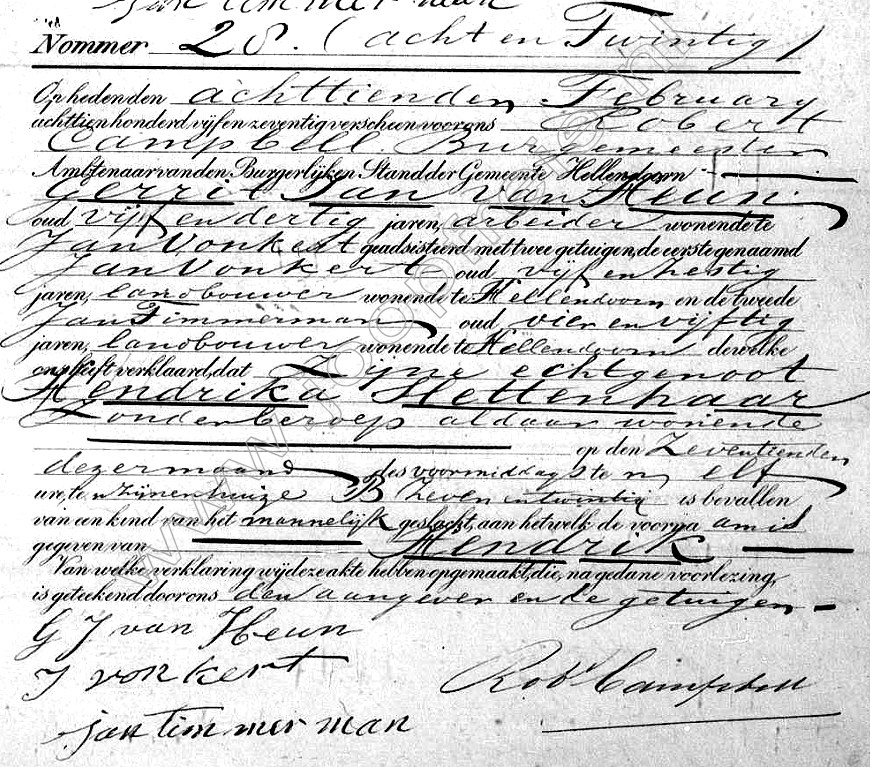 Jan timmerman
Nommer 28. (acht en Twintig)
Op heden den achttienden February
achttienhonderd vijf en zeventig verscheen voor ons Robert
Campbell Burgemeester
Ambtenaar van den Burgerlijken Stand der Gemeente Hellendoorn
Gerrit Jan van Heun
oud vijf en dertig jaren, arbeider wonende te
Jan Vonkert geadsisteerd met twee getuigen, de eerste genaamd
Jan Vonkert oud vijf en hestig
jaren, landbouwer wonende te Hellendoorn en de tweede
Jan Timmerman oud vier en vijftig
jaren, landbouwer wonende te Hellendoorn dewelke
ons heeft verklaard, dat Zijne echtgenoot
Hendrika Hettenhaar
Zonder beroep aldaar wonende
op den Zeventienden
dezer maand des voormiddags te n elf
ure, te n Zijnen huize B Zeven en twintig is bevallen
van een kind van het mannelijk geslacht, aan hetwelk de voorna am is
gegeven van Hendrik
Van welke verklaring wij deze akte hebben opgemaakt, die, na gedane voorlezing,
is geteekend door ons den aangever en de getuigen
G J van Heun
J vonkert
Rob Campbell
jan timmerman